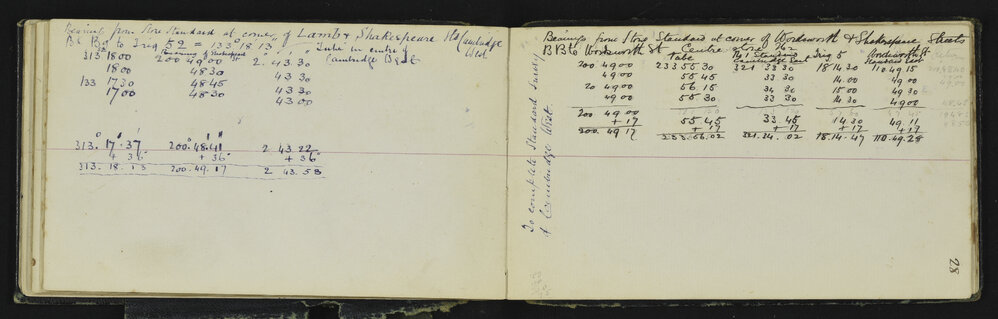 Bearings from Stone Standard at corner of Lamb & Shakespeare Sts (Cambridge West
Bk Bg to Trig 52 = 133° 18' 13" Tube in centre of
313 18 00 200 49 00 2. 43. 30 Cambridge Bg St
18 00 48 30 43 30
133 17 30 48 45 43 30
17 00 48 30 43 00
313. 17. 37 200. 48. 41 2 43 22
+ 36 + 36 + 36
313. 18. 13 200. 49. 17 2 43. 58
To complete Standard Survey
of Cambridge West.
Bearings from Stone Standard at corner of Wordsworth & Shakespeare Streets
BB to Wordsworth St Centre Tube No 1 Standard Cambridge East Trig 5 Wordsworth St
200 49 00 233 55 30 321 33 30 18 14 30 110 49 15
49 00 55 45 33 30 14 00 49 00
20 49 00 56 15 34 30 15 00 49 30
49 00 55 30 33 30 14 30 49 00
200 49 00 55. 45 33 45 14. 30 49. 11
+ 17 + 17 + 17 + 17 + 17
200. 49 17 233. 56. 02 321. 34. 02 18. 14. 47 110. 49. 28
28